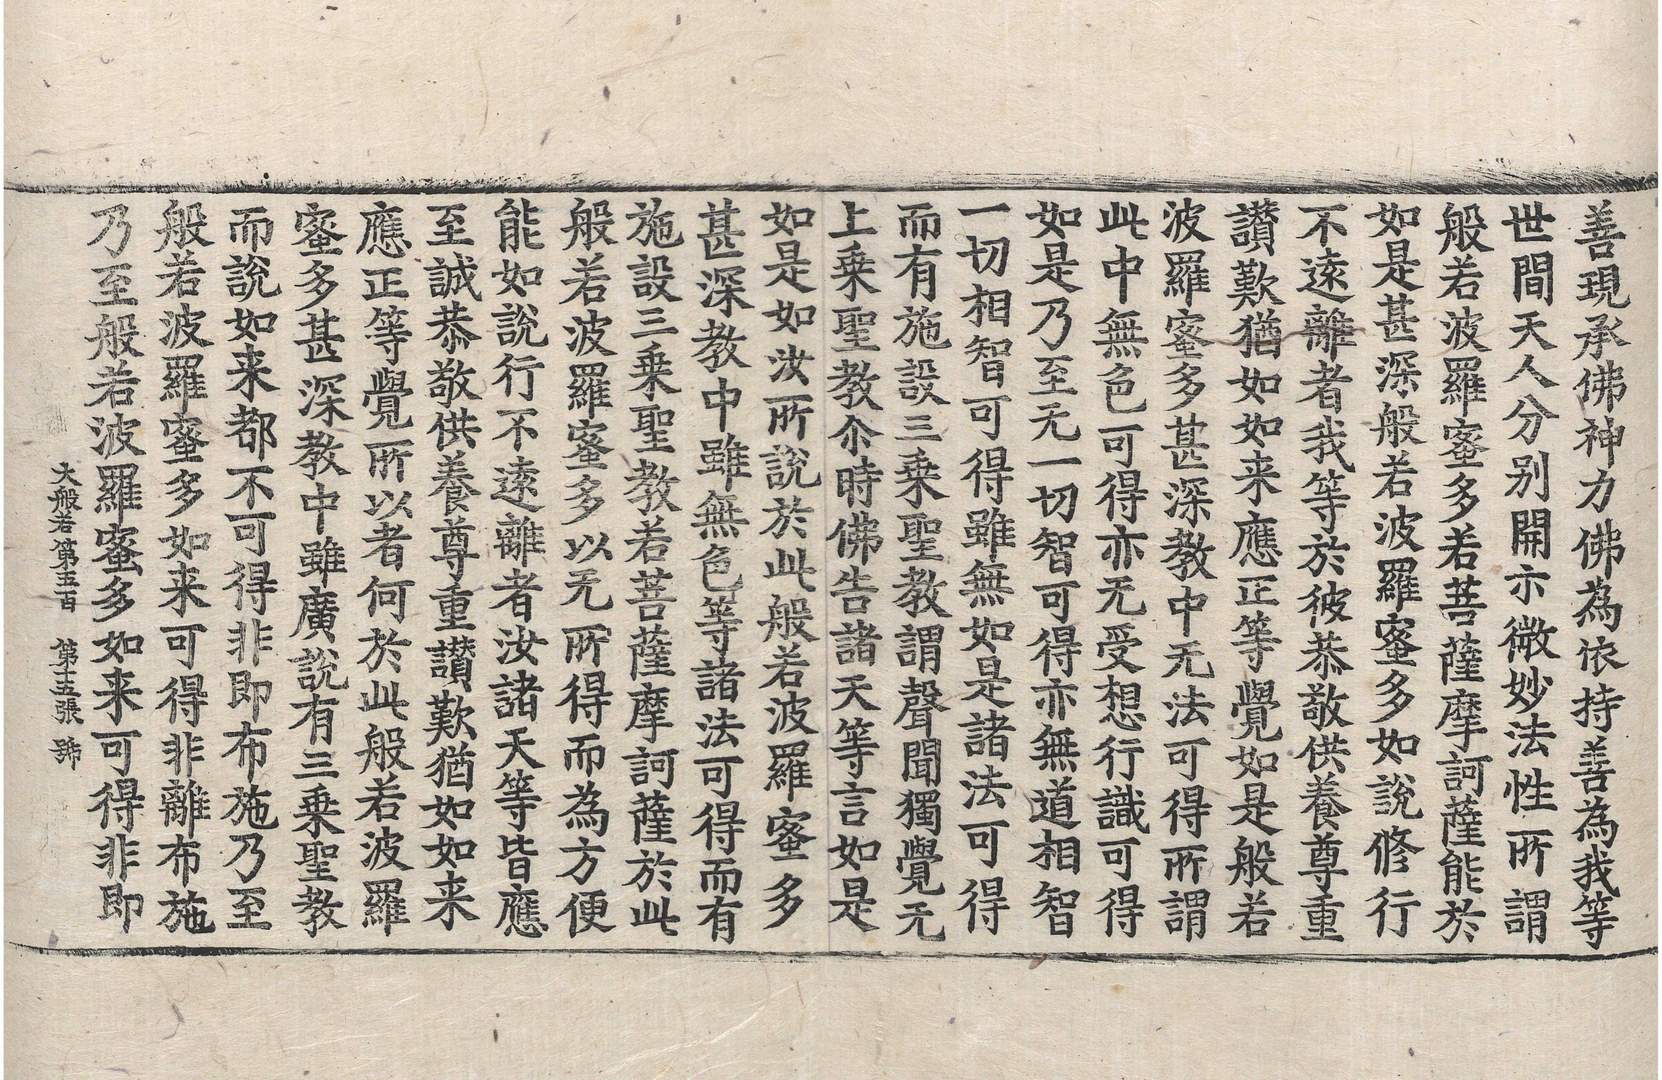 善現承佛神力佛為依持善為我等
世間天人分别開示微妙法性所謂
般若波羅蜜多若菩薩摩訶薩能於
如是甚深般若波羅蜜多如說修行
不遠離者我等於彼恭敬供養尊重
讚歎猶如如来應正等覺如是般若
波羅蜜多甚深教中无法可得所謂
此中無色可得亦无受想行識可得
如是乃至无一切智可得亦無道相智
一切相智可得雖無如是諸法可得
而有施設三乗聖教謂聲聞獨覺无
上乗聖教尒時佛告諸天等言如是
如是如汝所說於此般若波羅蜜多
甚深教中雖無色等諸法可得而有
施設三乗聖教若菩薩摩訶薩於此
般若波羅蜜多以无所得而為方便
能如說行不遠離者汝諸天等皆應
至誠恭敬供養尊重讚歎猶如如来
應正等覺所以者何於此般若波羅
蜜多甚深教中雖廣說有三乗聖教
而說如来都不可得非即布施乃至
般若波羅蜜多如来可得非離布施
乃至般若波羅蜜多如来可得非即
大般若第五百　第十五張　號